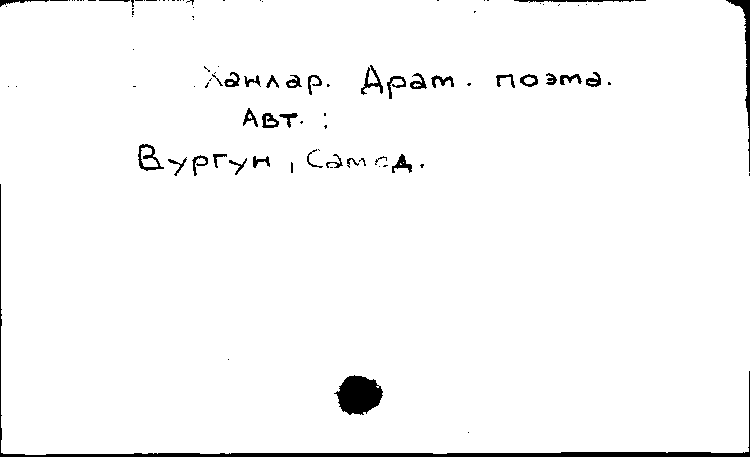 Ханлар. Драм. поэма.
Авт. :
Вургун, Самед.